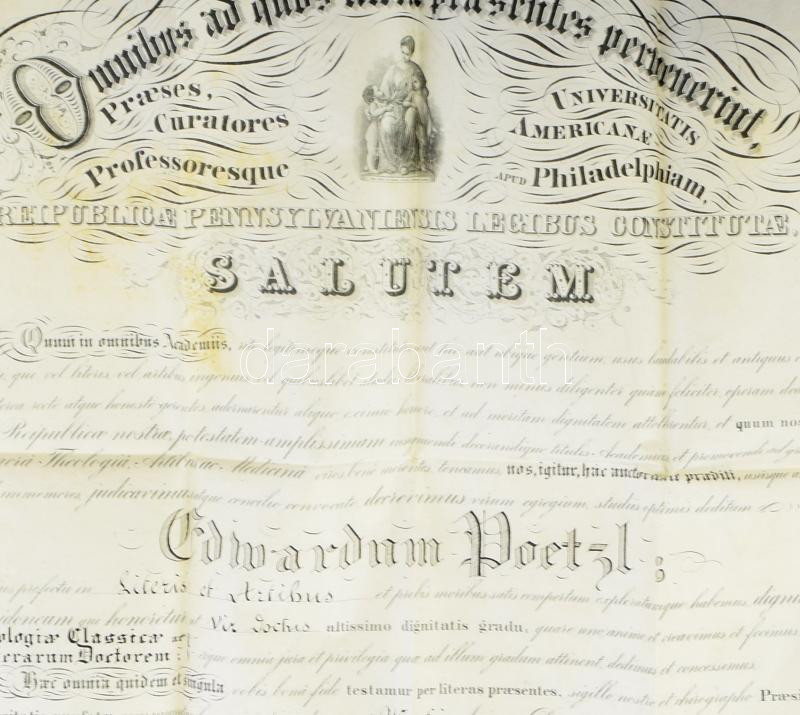 Omnibus ad quos præsentes pervenerint,
Præses,
Curatores
Professoresque
UNIVERSITATIS
AMERICANÆ
APUD Philadelphiam,
REIPUBLICÆ PENNSYLVANIENSIS LEGIBUS CONSTITUTÆ,
SALUTEM
Quum in omnibus Academiis, rite legitimeque constitutis vel hic aut ubique gentium, usus laudabilis et antiquus
que vel literis vel artibus ingenuis non minus diligenter quam feliciter, operam
recte atque honeste gerentes, adornarentur aliquo eximio honore, et ad meritam dignitatem attollerentur, et quum nos
Reipublicæ nostræ, potestatem amplissimam titulis Academicis et promovendi ad
Theologiâ, Artibus ac Medicinâ viros bene merentes teneamus, nos, igitur, hac auctoritate præditi,
memores, judicavimus atque concilio convocato decrevimus virum egregium, studiis optimis deditum
Edwardum Poetzl;
profectu in Literis et Artibus et probis moribus satis compertum exploratumque habemus, dignum
idoneum qui honoretur et Vir Doctus altissimo dignitatis gradu, quare uno animo et creavimus et fecimus
ologiæ Classicæ ac
erarum Doctorem: eique omnia jura et privilegia quæ ad illum gradum attinent, dedimus et concessimus.
Hæc omnia quidem et singula vobis bonâ fide testamur per literas præsentes, sigillo nostro et chirographo Præsi
darabanth